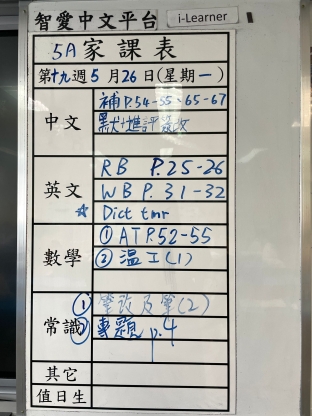 智愛中文平台 i-Learner
5A家課表
第十九週5月26日(星期一)
中文
補P.54-55、65-67
默+進評簽改
英文
RB P.25-26
WB P.31-32
☆ Dict tmr
數學
① AT P.52-55
② 溫工(1)
常識
① 筆改及筆(2)
② 專題 p.4
其它
值日生